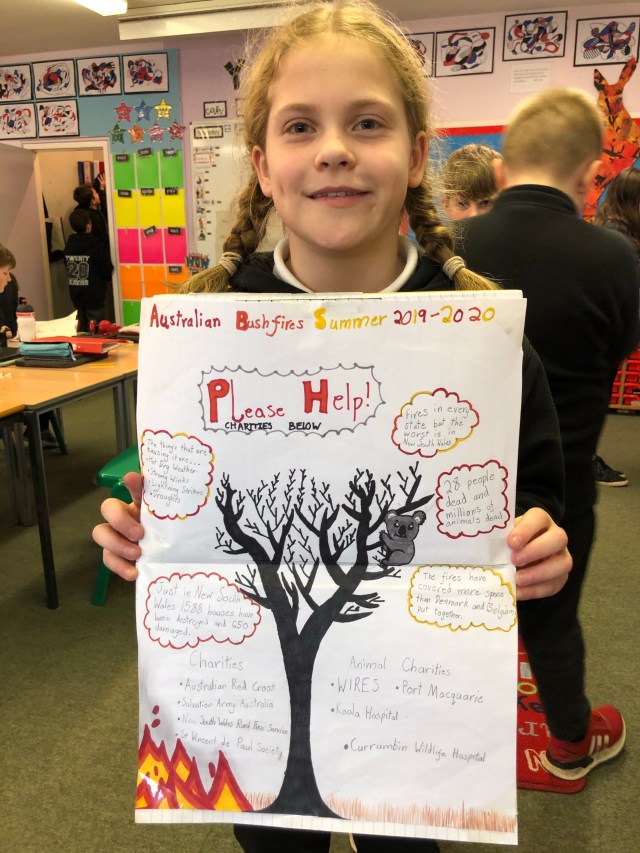 Australian Bushfires Summer 2019-2020
Please Help!
CHARITIES BELOW
Fires in every
state but the
worst is in
New South Wales
The things that are
causing it are...
• Hot Dry Weather
• Strong Winds
• Lightning Strikes
• Droughts
28 people
dead and
millions of
animals dead
Just in New South
Wales 1588 houses have
been destroyed and 650
damaged.
The fires have
covered more space
than Denmark and Belgium
put together.
Charities
• Australian Red Cross
• Salvation Army Australia
• New South Wales Rural Fire Service
• St Vincent de Paul Society
Animal Charities
• WIRES • Port Macquarie
• Koala Hospital
• Currumbin Wildlife Hospital
TWENTY
20